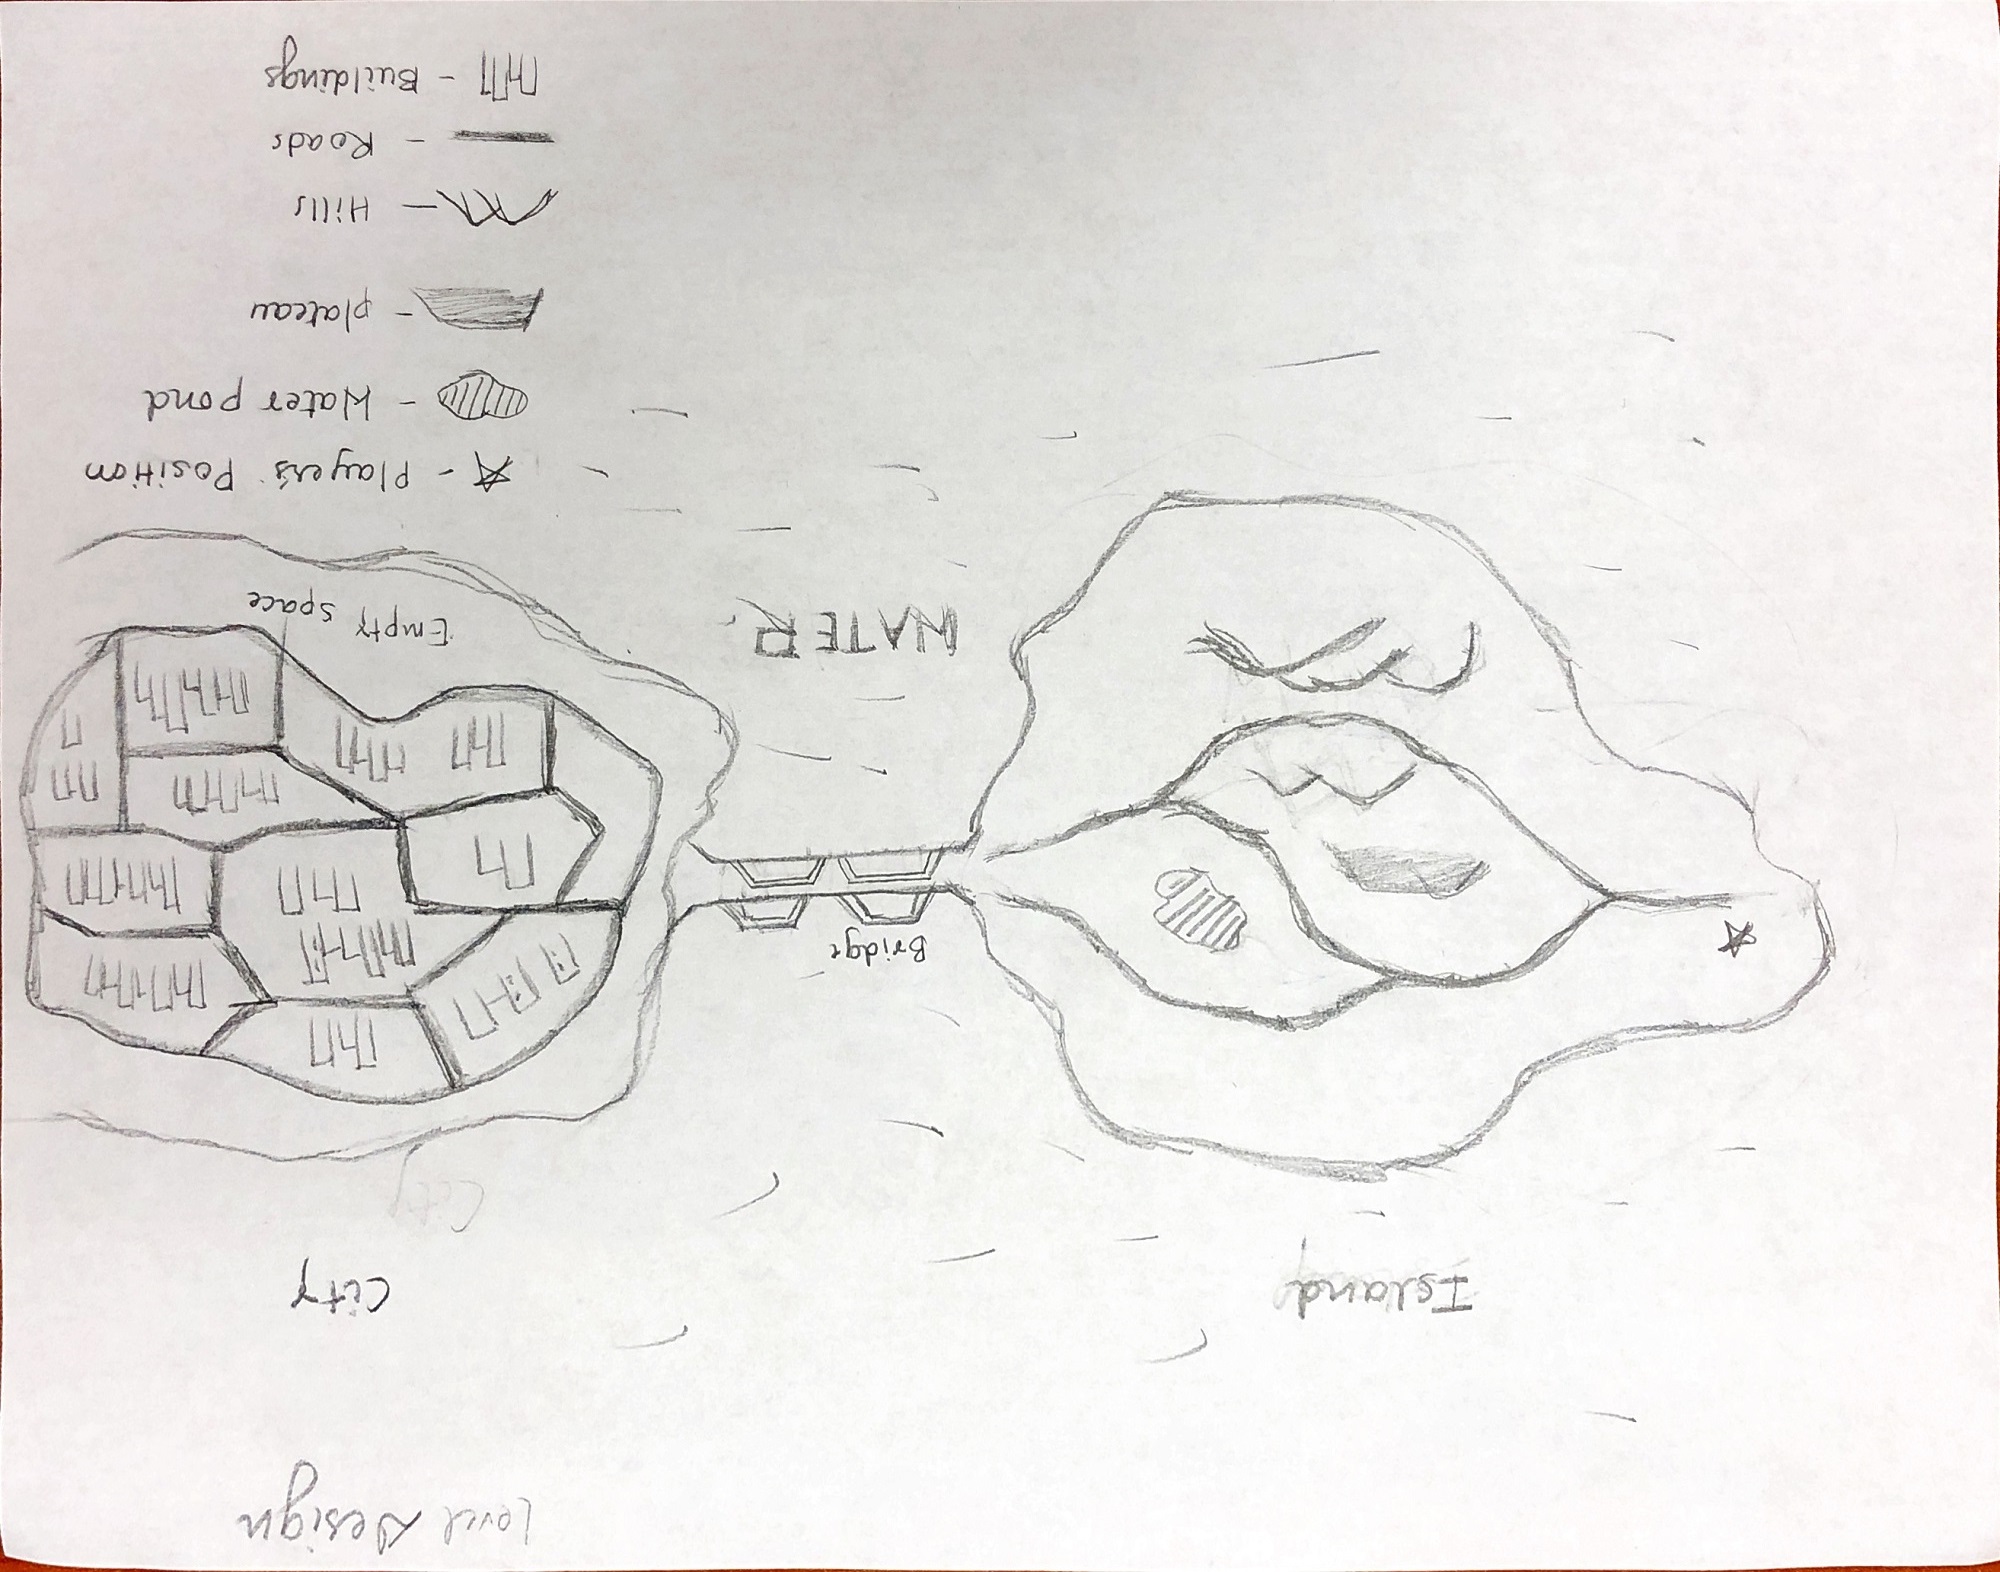 Level Design
Island
City
City
Bridge
WATER
Empty space
Player's Position
Water pond
plateau
Hills
Roads
Buildings